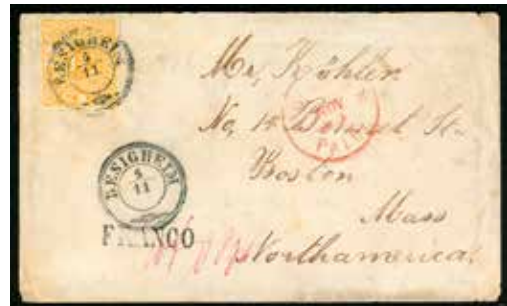 BESIGHEIM
5
11
Mr, Köhler
No, 14 St.
Boston
Mass
Northamerica.
NOV
PAID
BESIGHEIM
5
11
FRANCO